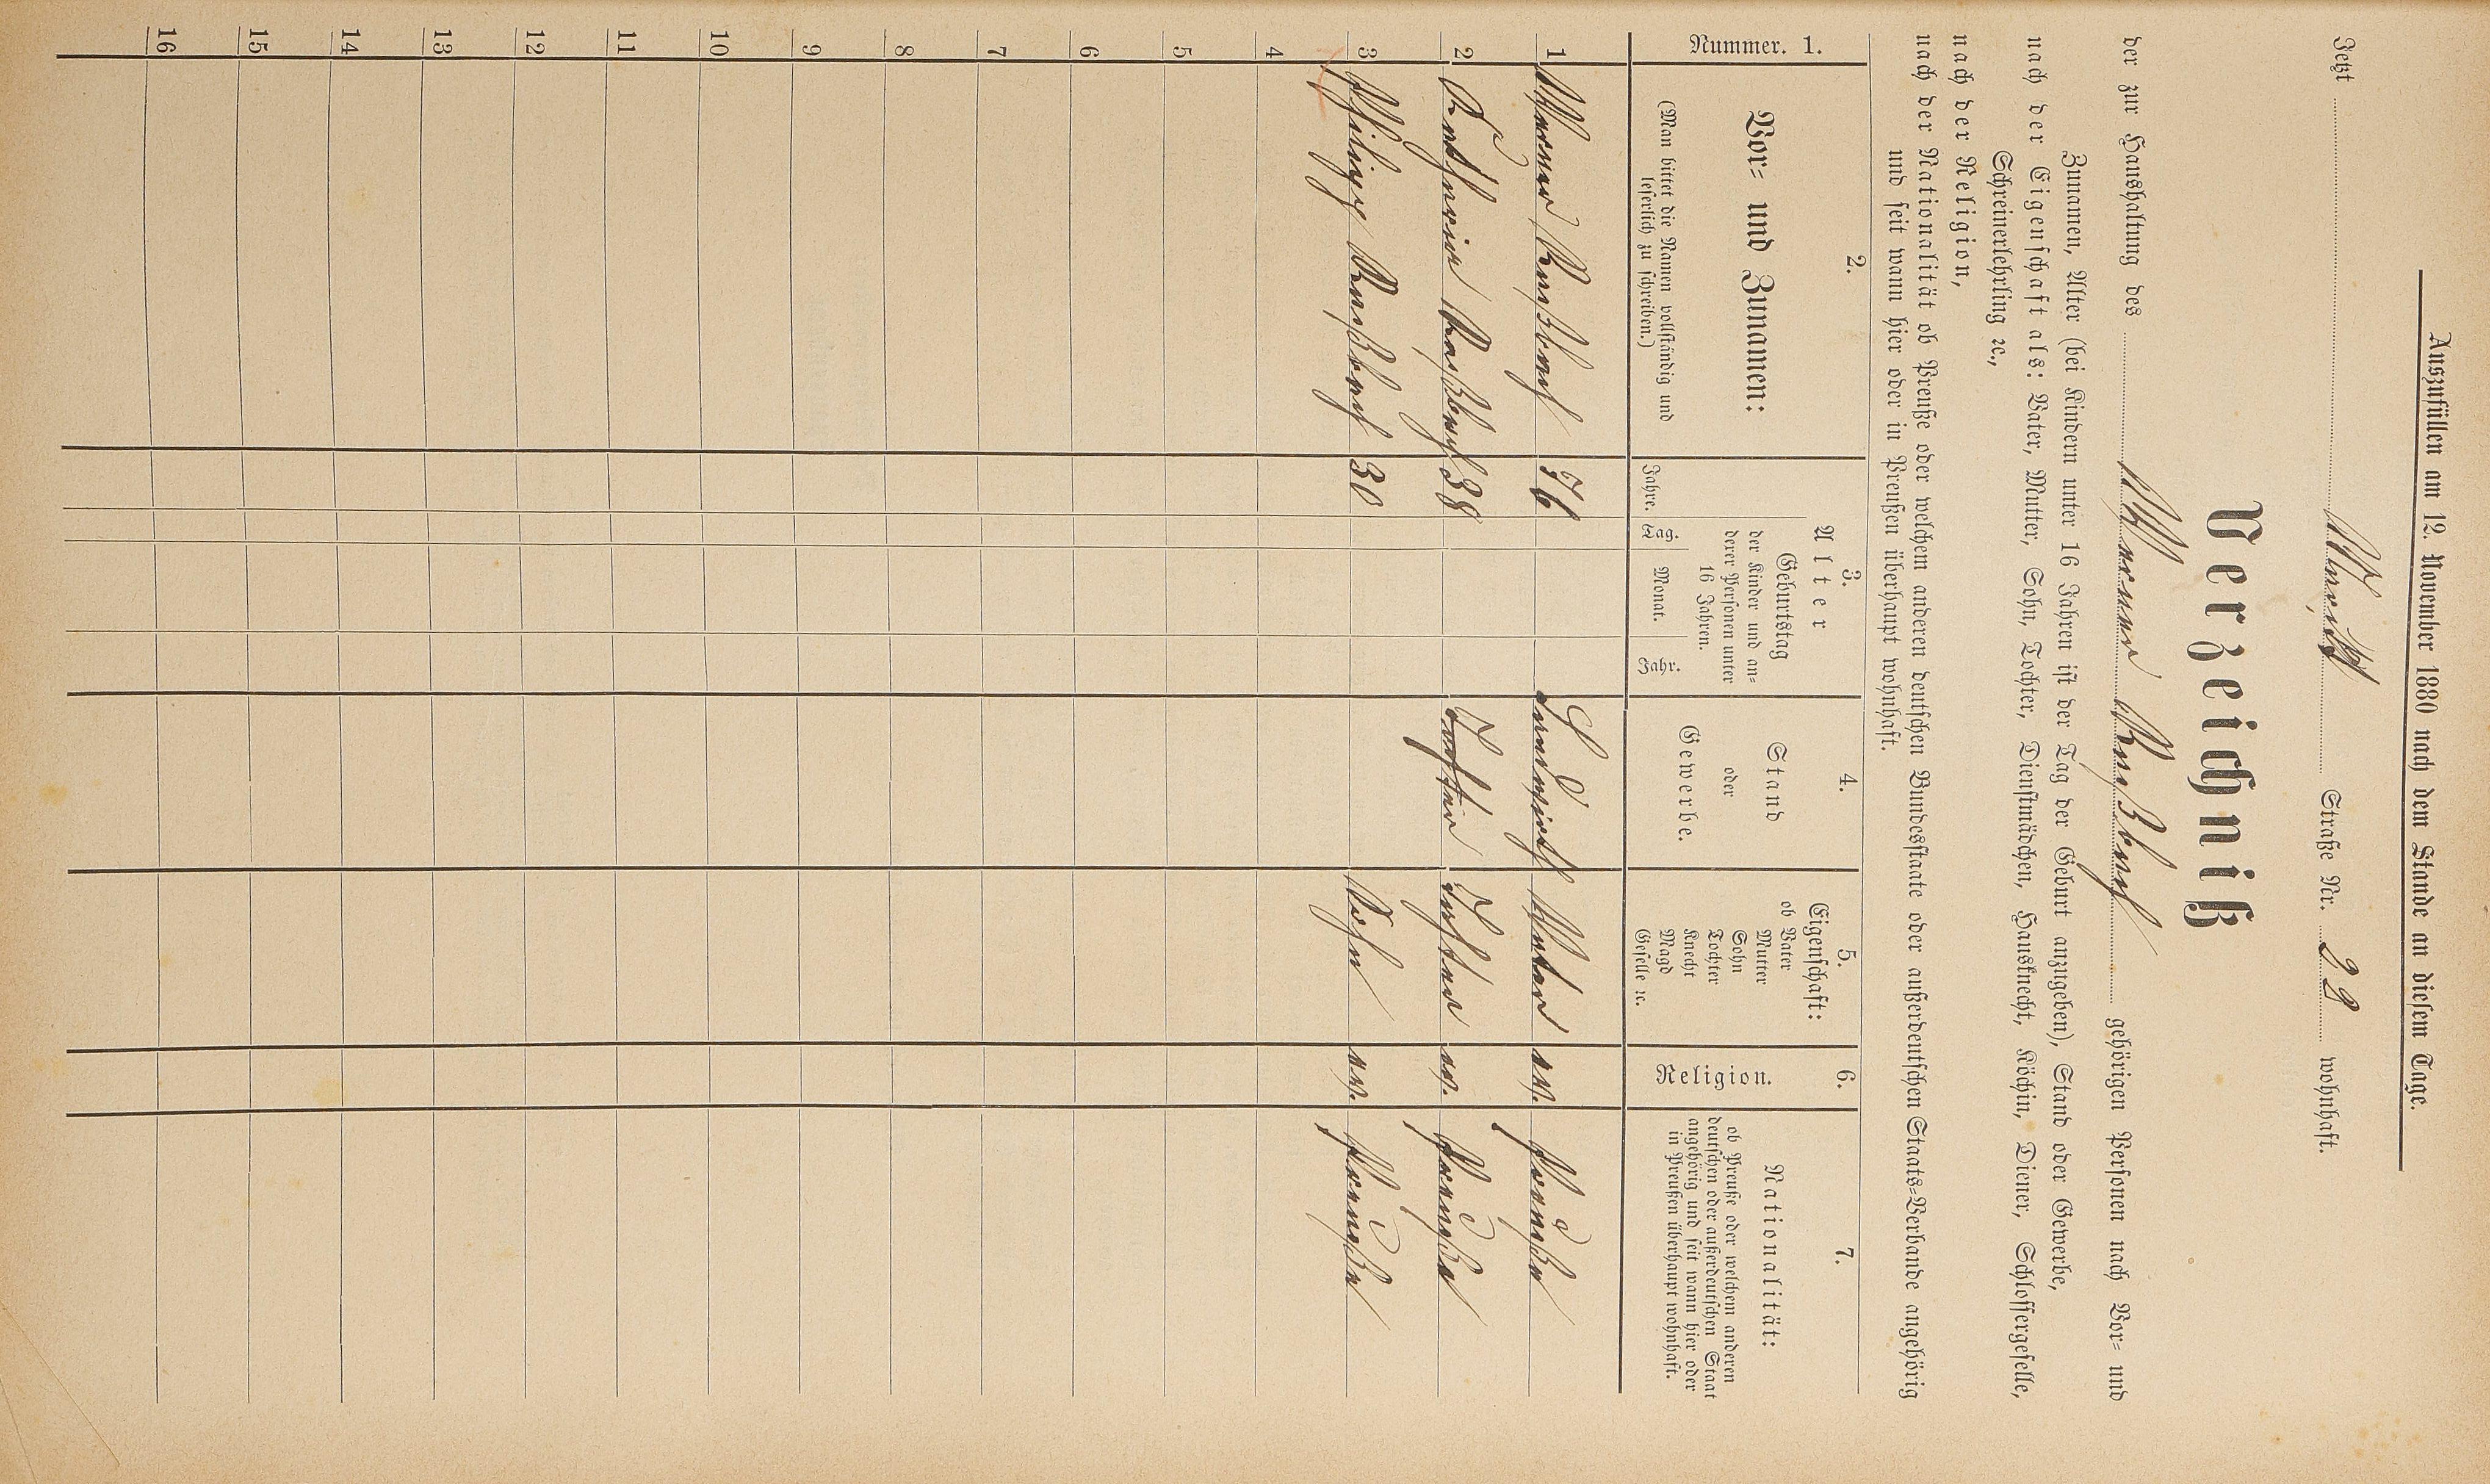 Auszufüllen am 12. November 1880 nach dem Stande an diesem Tage.
Jetzt Straße Nr. 22 wohnhaft.
Verzeichniß
der zur Haushaltung des Werner Bußbach gehörigen Personen nach Vor- und
Zunamen, Alter (bei Kindern unter 16 Jahren ist der Tag der Geburt anzugeben), Stand oder Gewerbe,
nach der Eigenschaft als: Vater, Mutter, Sohn, Tochter, Dienstmädchen, Hausknecht, Köchin, Diener, Schlossergeselle,
Schreinerlehrling ꝛc.,
nach der Religion,
nach der Nationalität ob Preuße oder welchem anderen deutschen Bundesstaate oder außerdeutschen Staats-Verbande angehörig
und seit wann hier oder in Preußen überhaupt wohnhaft.
Nummer. 1.
2.
Vor- und Zunamen:
(Man bittet die Namen vollständig und
leserlich zu schreiben.)
3.
Alter
Jahre.
Geburtstag
der Kinder und an-
derer Personen unter
16 Jahren.
Tag. Monat. Jahr.
4.
Stand
oder
Gewerbe.
5.
Eigenschaft:
ob Vater
Mutter
Sohn
Tochter
Knecht
Magd
Geselle ꝛc.
6.
Religion.
7.
Nationalität:
ob Preuße oder welchem anderen
deutschen oder außerdeutschen Staat
angehörig und seit wann hier oder
in Preußen überhaupt wohnhaft.
1 Werner Bußbach 76 Landwirth Vater ev. Preuße
2 Cathrina Bußbach 38 Tochter Tochter ev. Preuße
3 Philipp Bußbach 30 Sohn ev. Preuße
4
5
6
7
8
9
10
11
12
13
14
15
16